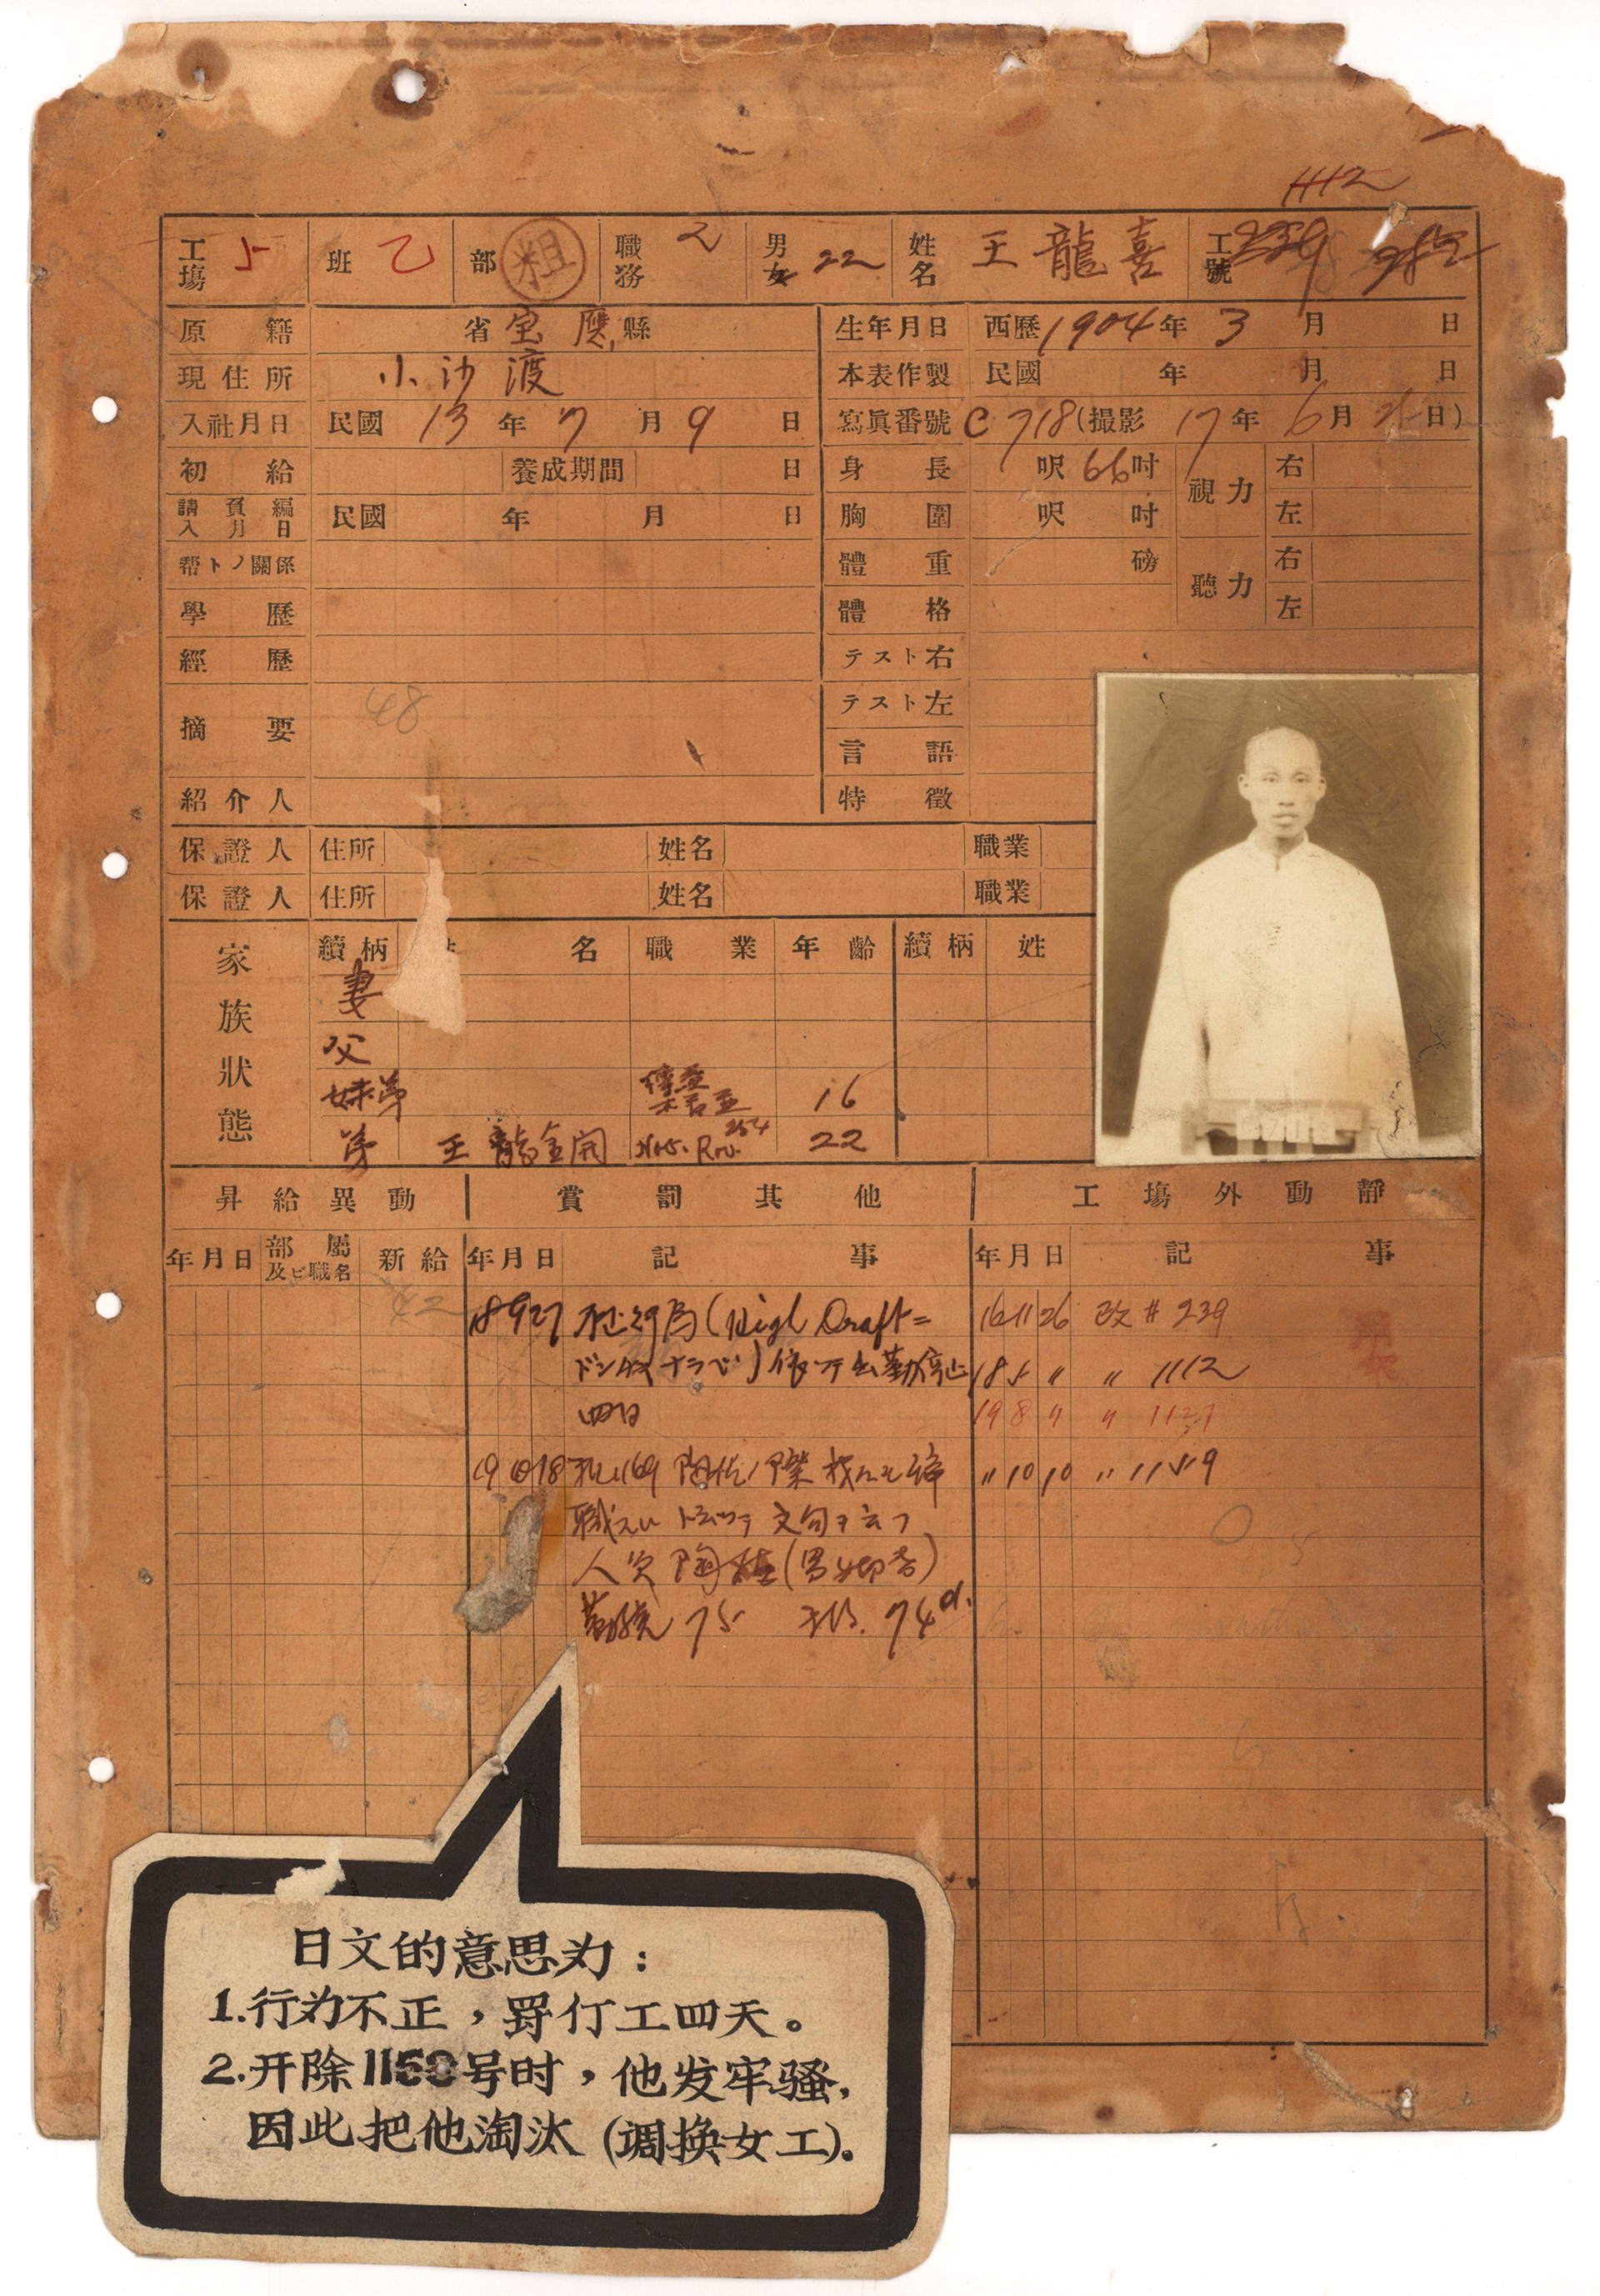 1112
工場 5 班 乙 部 粗 職務 2 男女 22 姓名 王龍喜 工號 239
原籍 省 宝應 縣 生年月日 西歷 1904 年 3 月 日
現住所 小沙渡 本表作製 民國 年 月 日
入社月日 民國 13 年 7 月 9 日 寫眞番號 C 718 (撮影 17 年 6 月 日)
初給 養成期間 日 身長 呎 66 吋 視力 右
請負編入月日 民國 年 月 日 胸圍 呎 吋 左
幇トノ關係 體重 磅 聽力 右
學歷 體格 左
經歷 テスト右
摘要 48 テスト左
言語
紹介人 特徵
保證人 住所 姓名 職業
保證人 住所 姓名 職業
家族狀態 續柄 名 職業 年齡 續柄 姓
妻
父
妹弟 16
弟 王龍金開 254 22
昇給異動 賞罰其他 工場外動靜
年月日 部屬及ビ職名 新給 年月日 記事 年月日 記事
42 18 9 27 (High Draft= 16 11 26 改 # 239
出勤停止 18 5 〃 〃 1112
四日 19 8 〃 〃 1127
19 10 18 〃 10 10 〃 1159
職 文句ヲ云フ
人 陶
75 74
日文的意思为:
1.行为不正,罸仃工四天。
2.开除1159号时,他发牢骚,
因此把他淘汰(调换女工)。